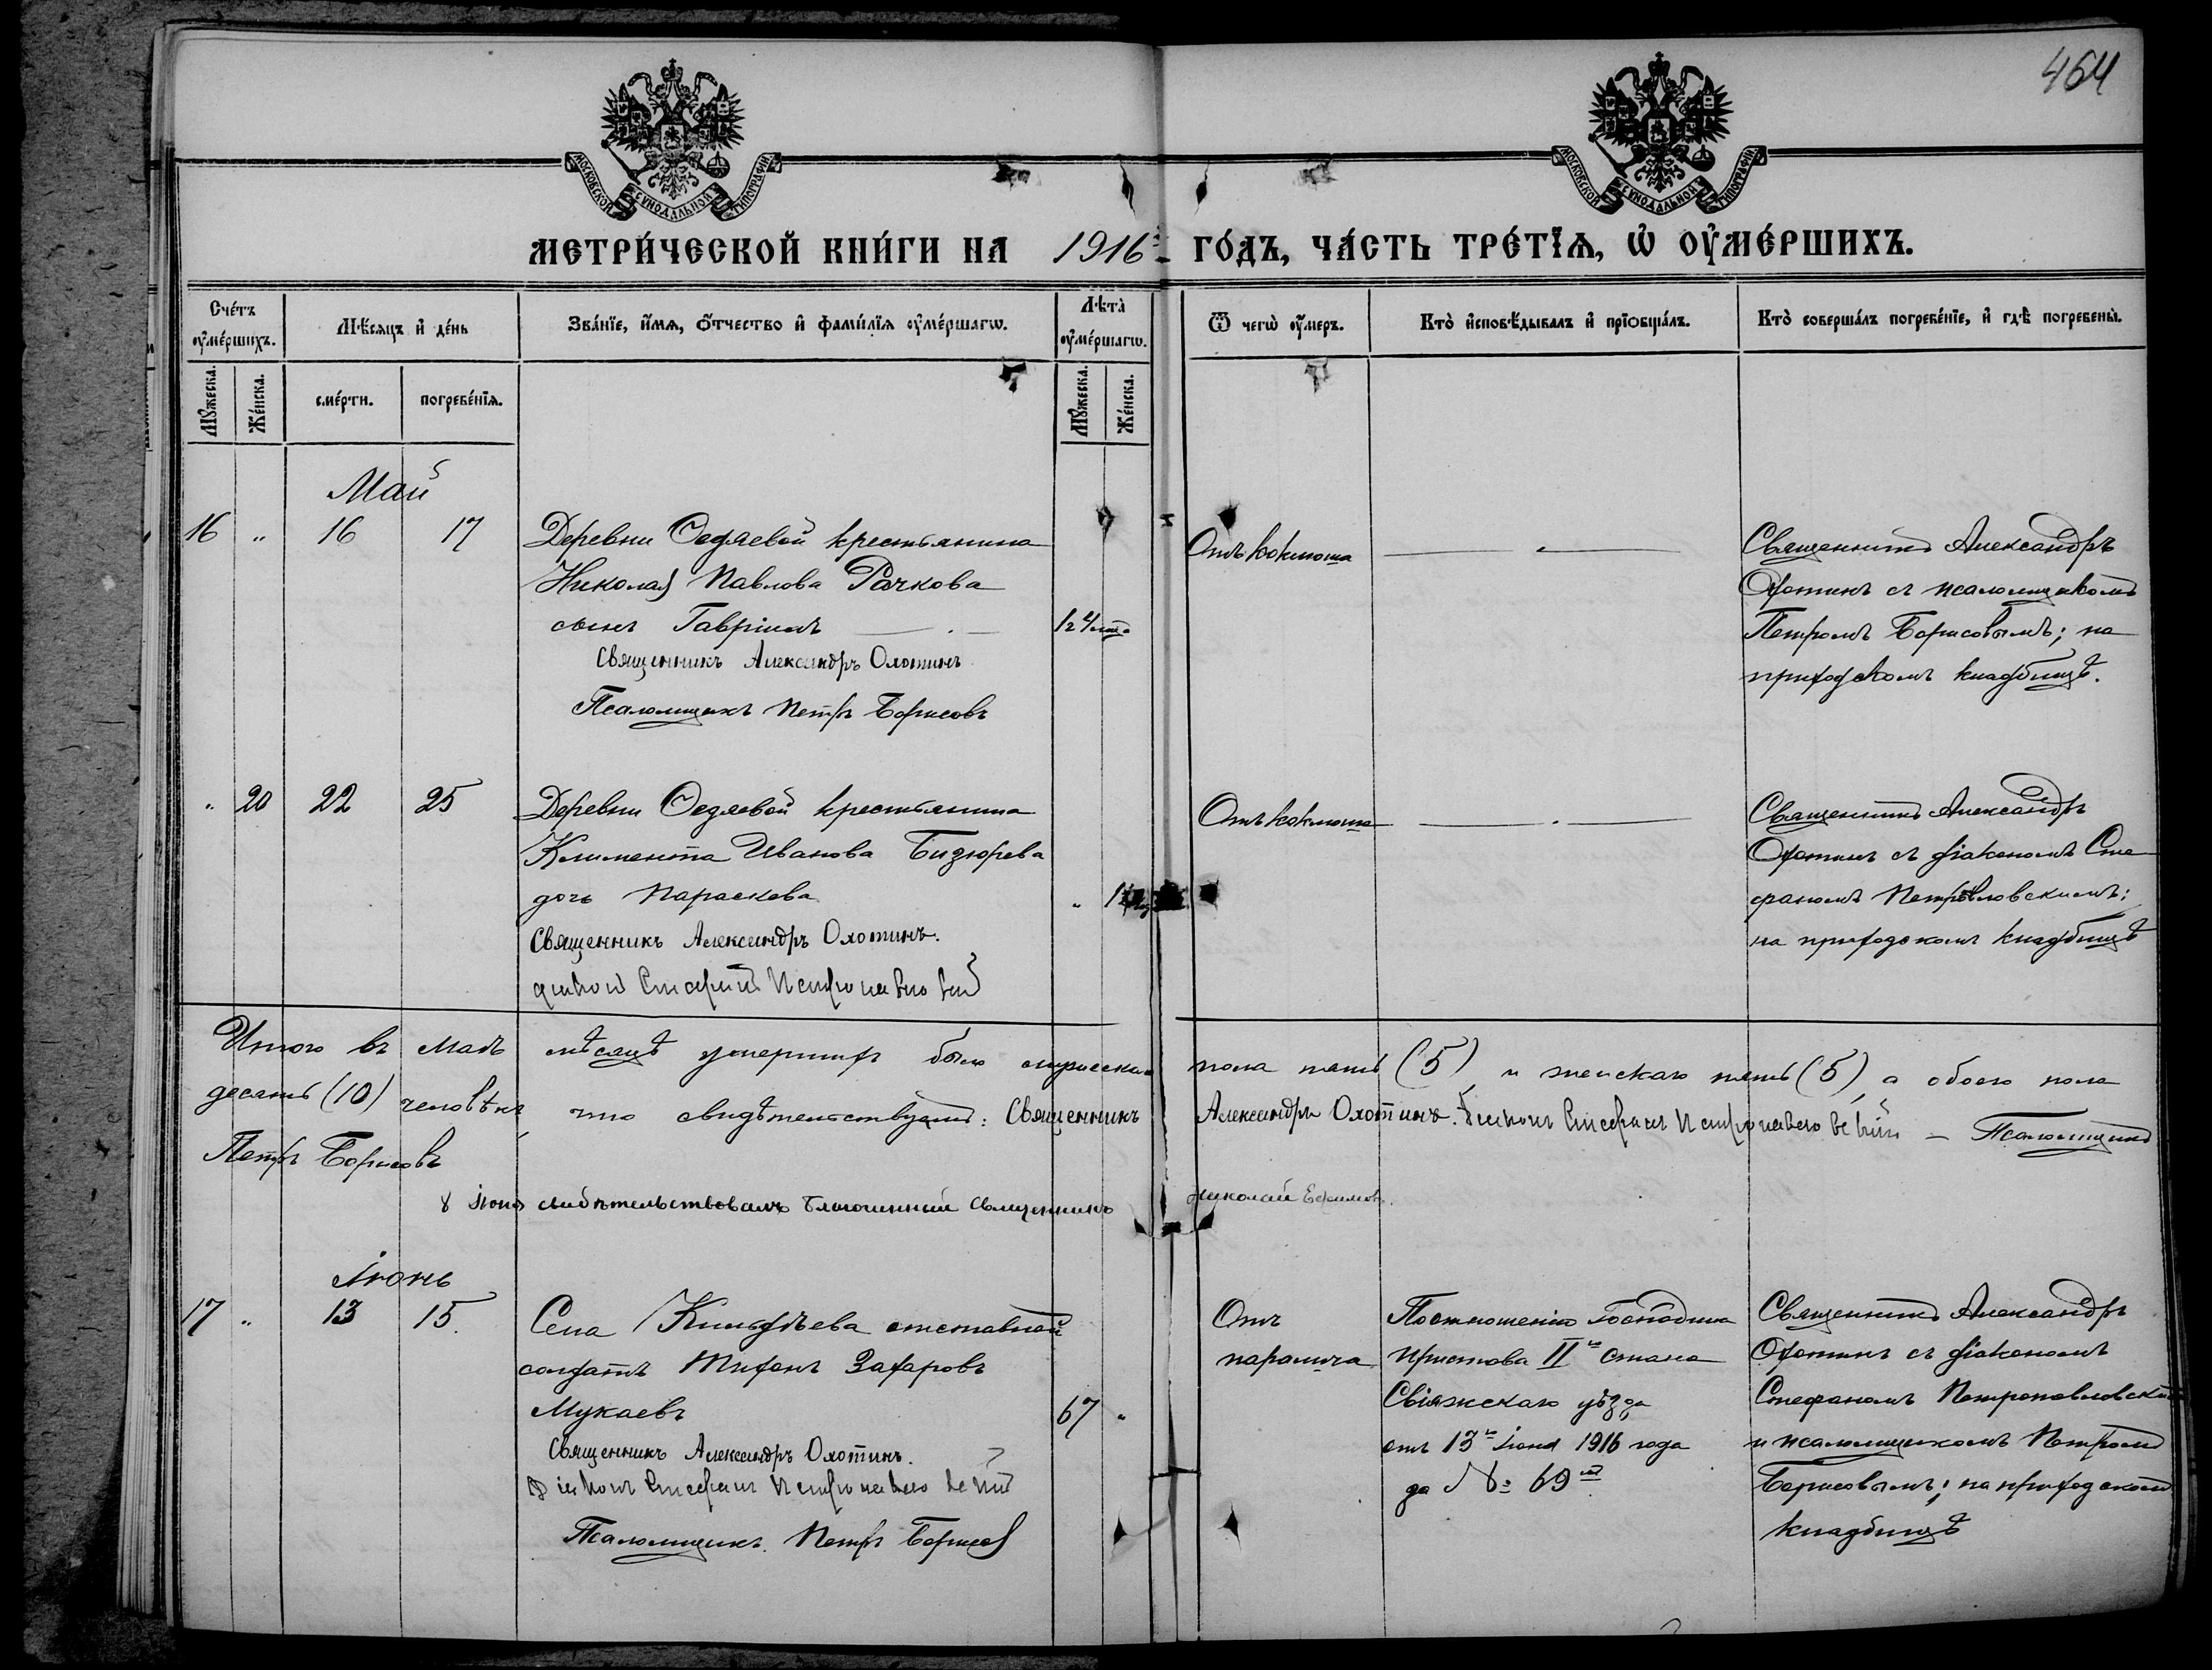 464
МОСКОВСКОЙ СѴНОДАЛЬНОЙ ТИПОГРАФІИ
МОСКОВСКОЙ СѴНОДАЛЬНОЙ ТИПОГРАФІИ
МЕТРИ́ЧЕСКОЙ КНИ́ГИ НА 1916 ГО́ДЪ, ЧА́СТЬ ТРЕ́ТЇѦ, Ѡ҆ ОУ҆МЕ́РШИХЪ.
Сче́тъ оу҆ме́ршихъ.
Мѣ́сяцъ и҆ де́нь
Зва́нїе, и҆́мѧ, ѻ҆́тчество и҆ фами́лїѧ оу҆ме́ршагѡ.
Лѣта̀ оу҆ме́ршагѡ.
Ѿ чегѡ̀ оу҆́меръ.
Кто̀ и҆сповѣ́дывалъ и҆ прїѡбща́лъ.
Кто̀ соверша́лъ погребе́нїе, и҆ гдѣ̀ погребены̀.
Мꙋ́жеска.
Же́нска.
сме́рти.
погребе́нїя.
Мꙋ́жеска.
Же́нска.
Май
16 " 16 17
Деревни Федяевой крестьянина
Николая Павлова Рачкова
сынъ Гавріилъ
Священникъ Александръ Охотинъ
Псаломщикъ Петръ Борисовъ
Отъ коклюша
Священникъ Александръ
Охотинъ съ псаломщикомъ
Петромъ Борисовымъ; на
приходскомъ кладбищѣ.
" 20 22 25
Деревни Федяевой крестьянина
Климента Иванова Бизюрева
дочь Параскева
Священникъ Александръ Охотинъ.
діаконъ Стефанъ Петропавловскій
Отъ коклюша
Священникъ Александръ
Охотинъ съ діакономъ Сте
фаномъ Петропавловскимъ;
на приходскомъ кладбищѣ
Итого въ маѣ мѣсяцѣ умершихъ было мужеска пола пять (5), и женскаго пять (5), а обоего пола
десять (10) человѣкъ, что свидѣтельствуемъ: Священникъ Александръ Охотинъ. Діаконъ Стефанъ Петропавловскій – Псаломщикъ
Петръ Борисовъ
8 іюня свидѣтельствовалъ благочинный священникъ Николай Ефимовъ.
Іюнь
17 " 13 15
Села Кильдѣева отставной
солдатъ Тихонъ Захаровъ
Мукаевъ
67 "
Священникъ Александръ Охотинъ.
Діаконъ Стефанъ Петропавловскій
Псаломщикъ Петръ Борисов
Отъ
паралича
По отношенію Господина
Пристава II го стана
Свіяжскаго уѣзда
отъ 13 го Іюня 1916 года
за № 69 мъ
Священникъ Александръ
Охотинъ съ діакономъ
Стефаномъ Петропавловским
и псаломщикомъ Петромъ
Борисовымъ; на приходском
кладбищѣ